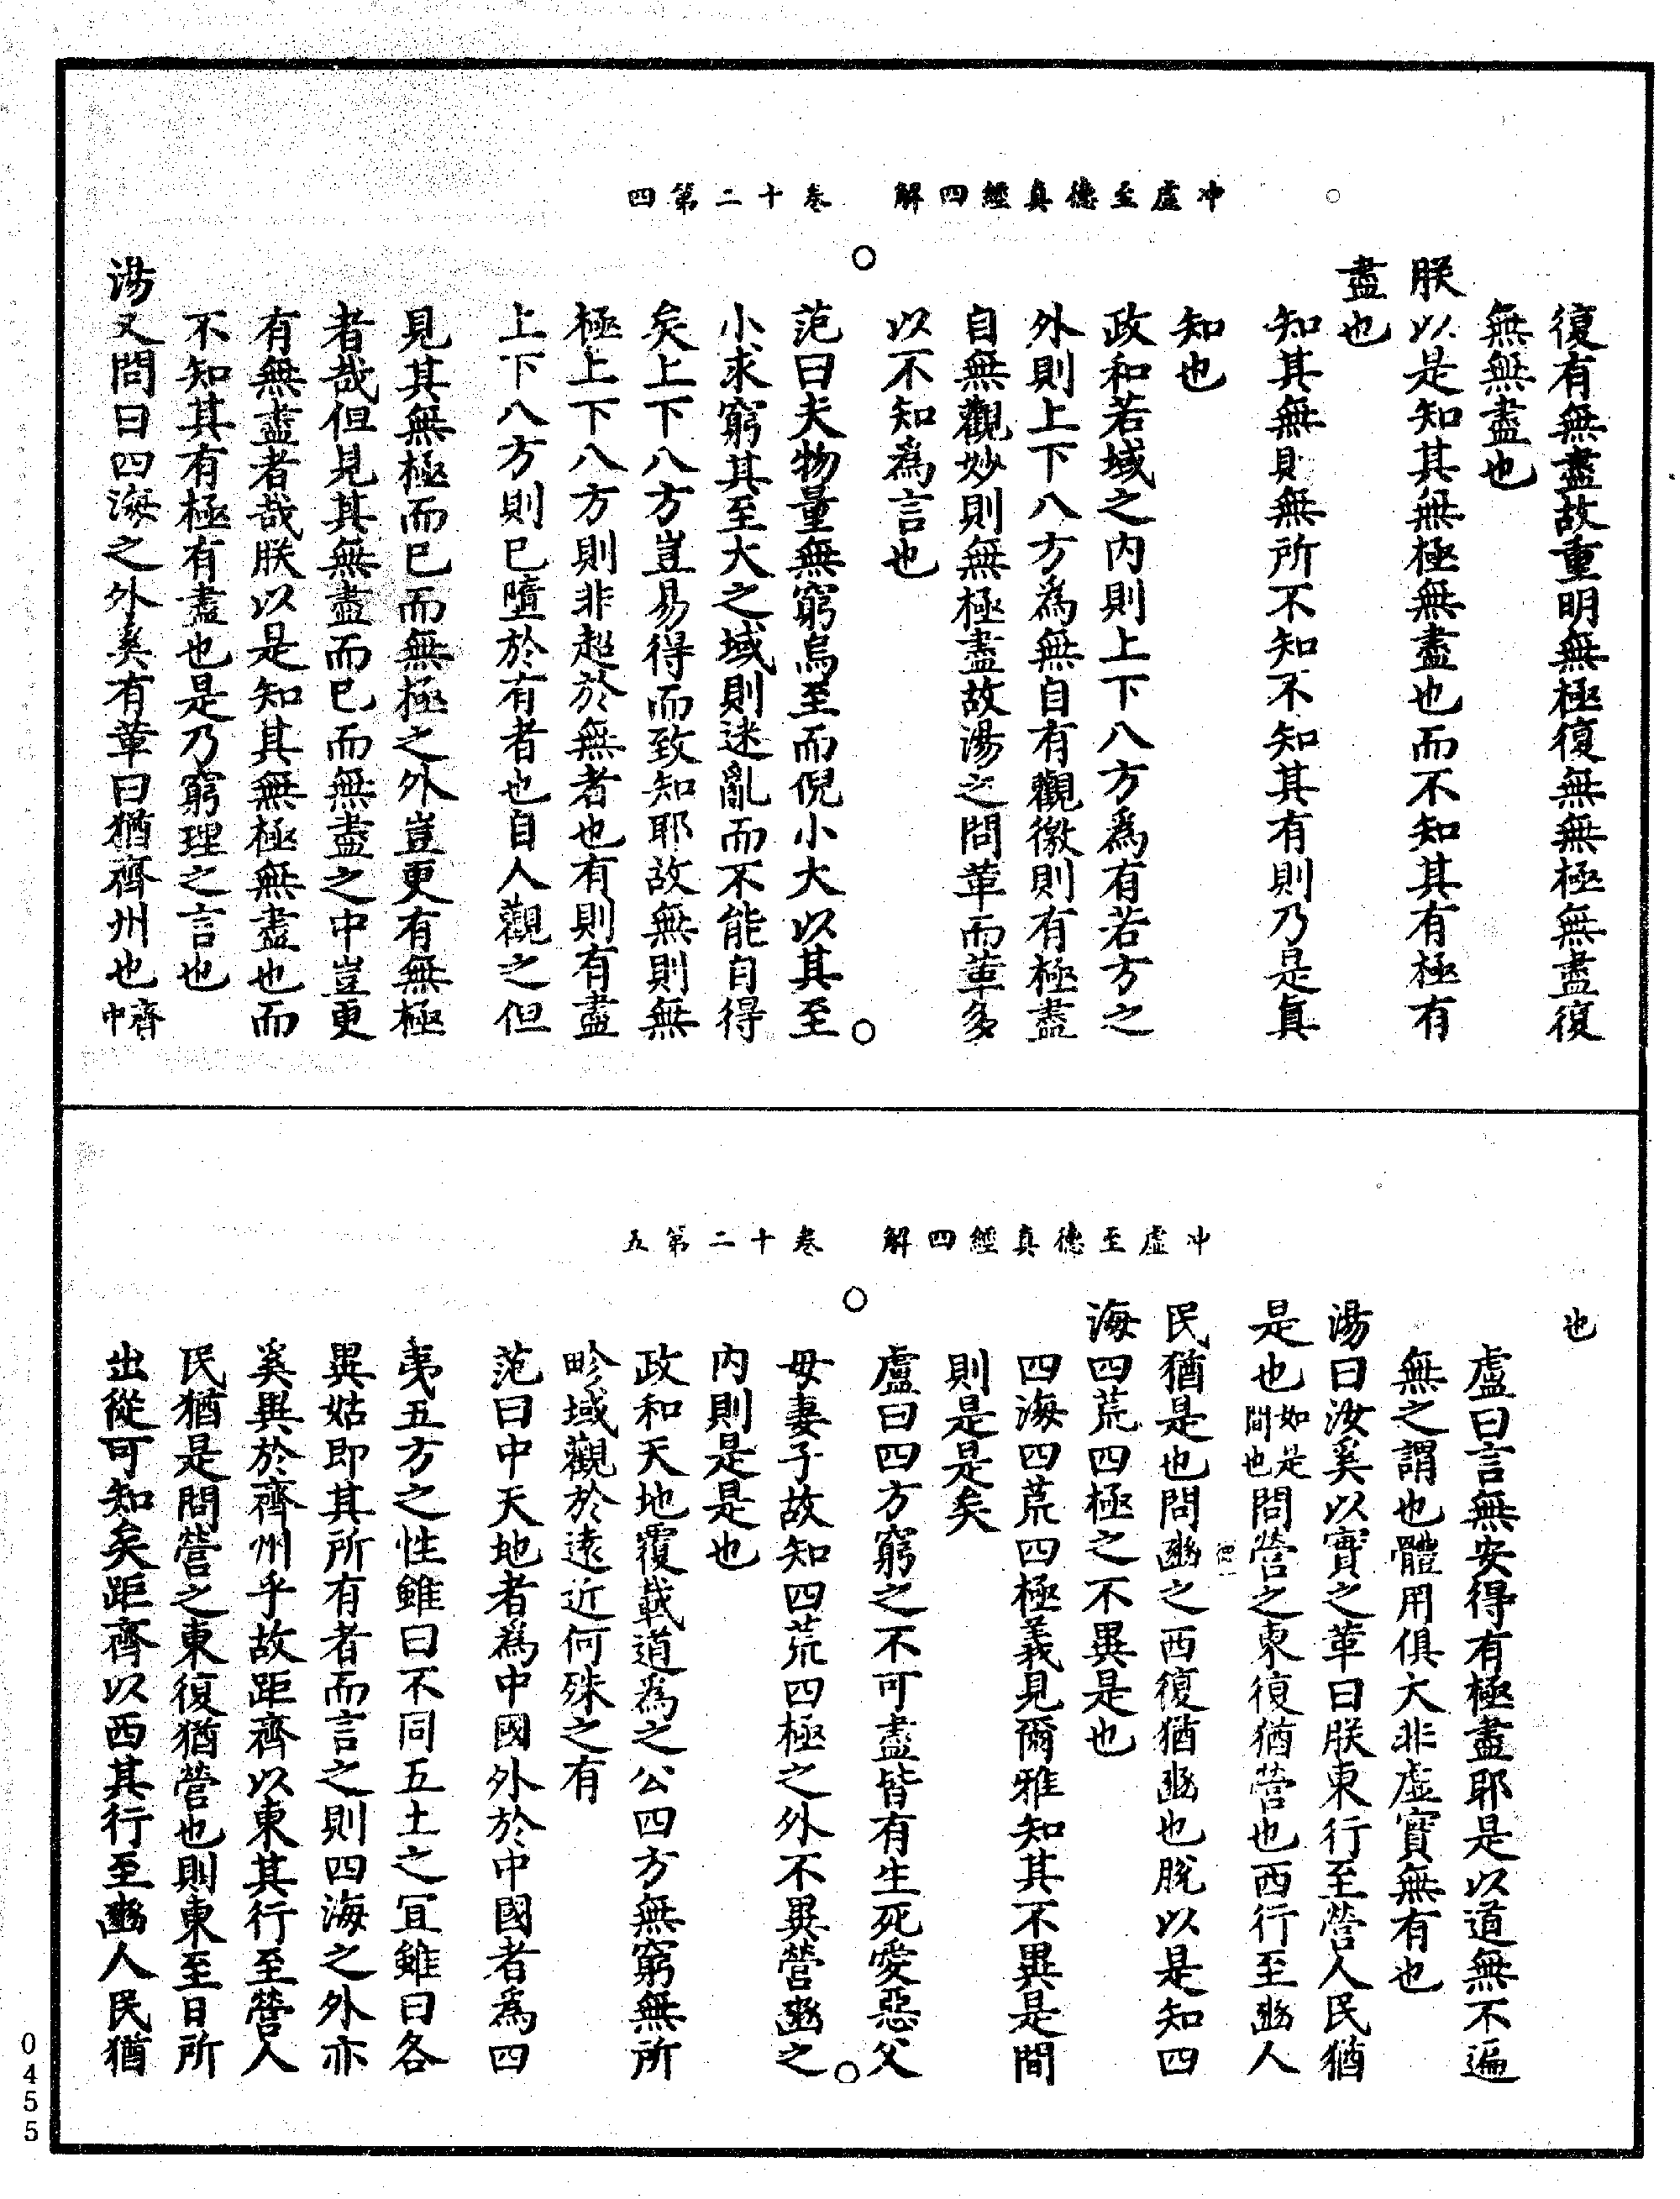 冲虛至德真經四解　卷十二第四
復有無盡故重明無極復無無極無盡復
無無盡也
朕以是知其無極無盡也而不知其有極有
盡也
知其無則無所不知不知其有則乃是真
知也
政和若域之內則上下八方為有若方之
外則上下八方為無自有觀徼則有極盡
自無觀妙則無極盡故湯之問革而革多
以不知為言也
范曰夫物量無窮烏至而倪小大以其至
小求窮其至大之域則迷亂而不能自得
矣上下八方豈易得而致知耶故無則無
極上下八方則非超於無者也有則有盡
上下八方則已墮於有者也自人觀之但
見其無極而已而無極之外豈更有無極
者哉但見其無盡而已而無盡之中豈更
有無盡者哉朕以是知其無極無盡也而
不知其有極有盡也是乃窮理之言也
湯又問曰四海之外奚有革曰猶齊州也齊中
冲虛至德真經四解　卷十二第五
也
盧曰言無安得有極盡耶是以道無不遍
無之謂也體用俱大非虛實無有也
湯曰汝奚以實之革曰朕東行至營人民猶
是也如是間也問營之東復猶營也西行至豳人
民猶是也問豳之西復猶豳也脫以是知四
海四荒四極之不異是也
四海四荒四極義見爾雅知其不異是間
則是是矣
盧曰四方窮之不可盡皆有生死愛惡父
母妻子故知四荒四極之外不異營豳之
內則是是也
政和天地覆載道為之公四方無窮無所
畛域觀於遠近何殊之有
范曰中天地者為中國外於中國者為四
夷五方之性雖曰不同五土之宜雖曰各
異姑即其所有者而言之則四海之外亦
奚異於齊州乎故距齊以東其行至營人
民猶是問營之東復猶營也則東至日所
出從可知矣距齊以西其行至豳人民猶
0455